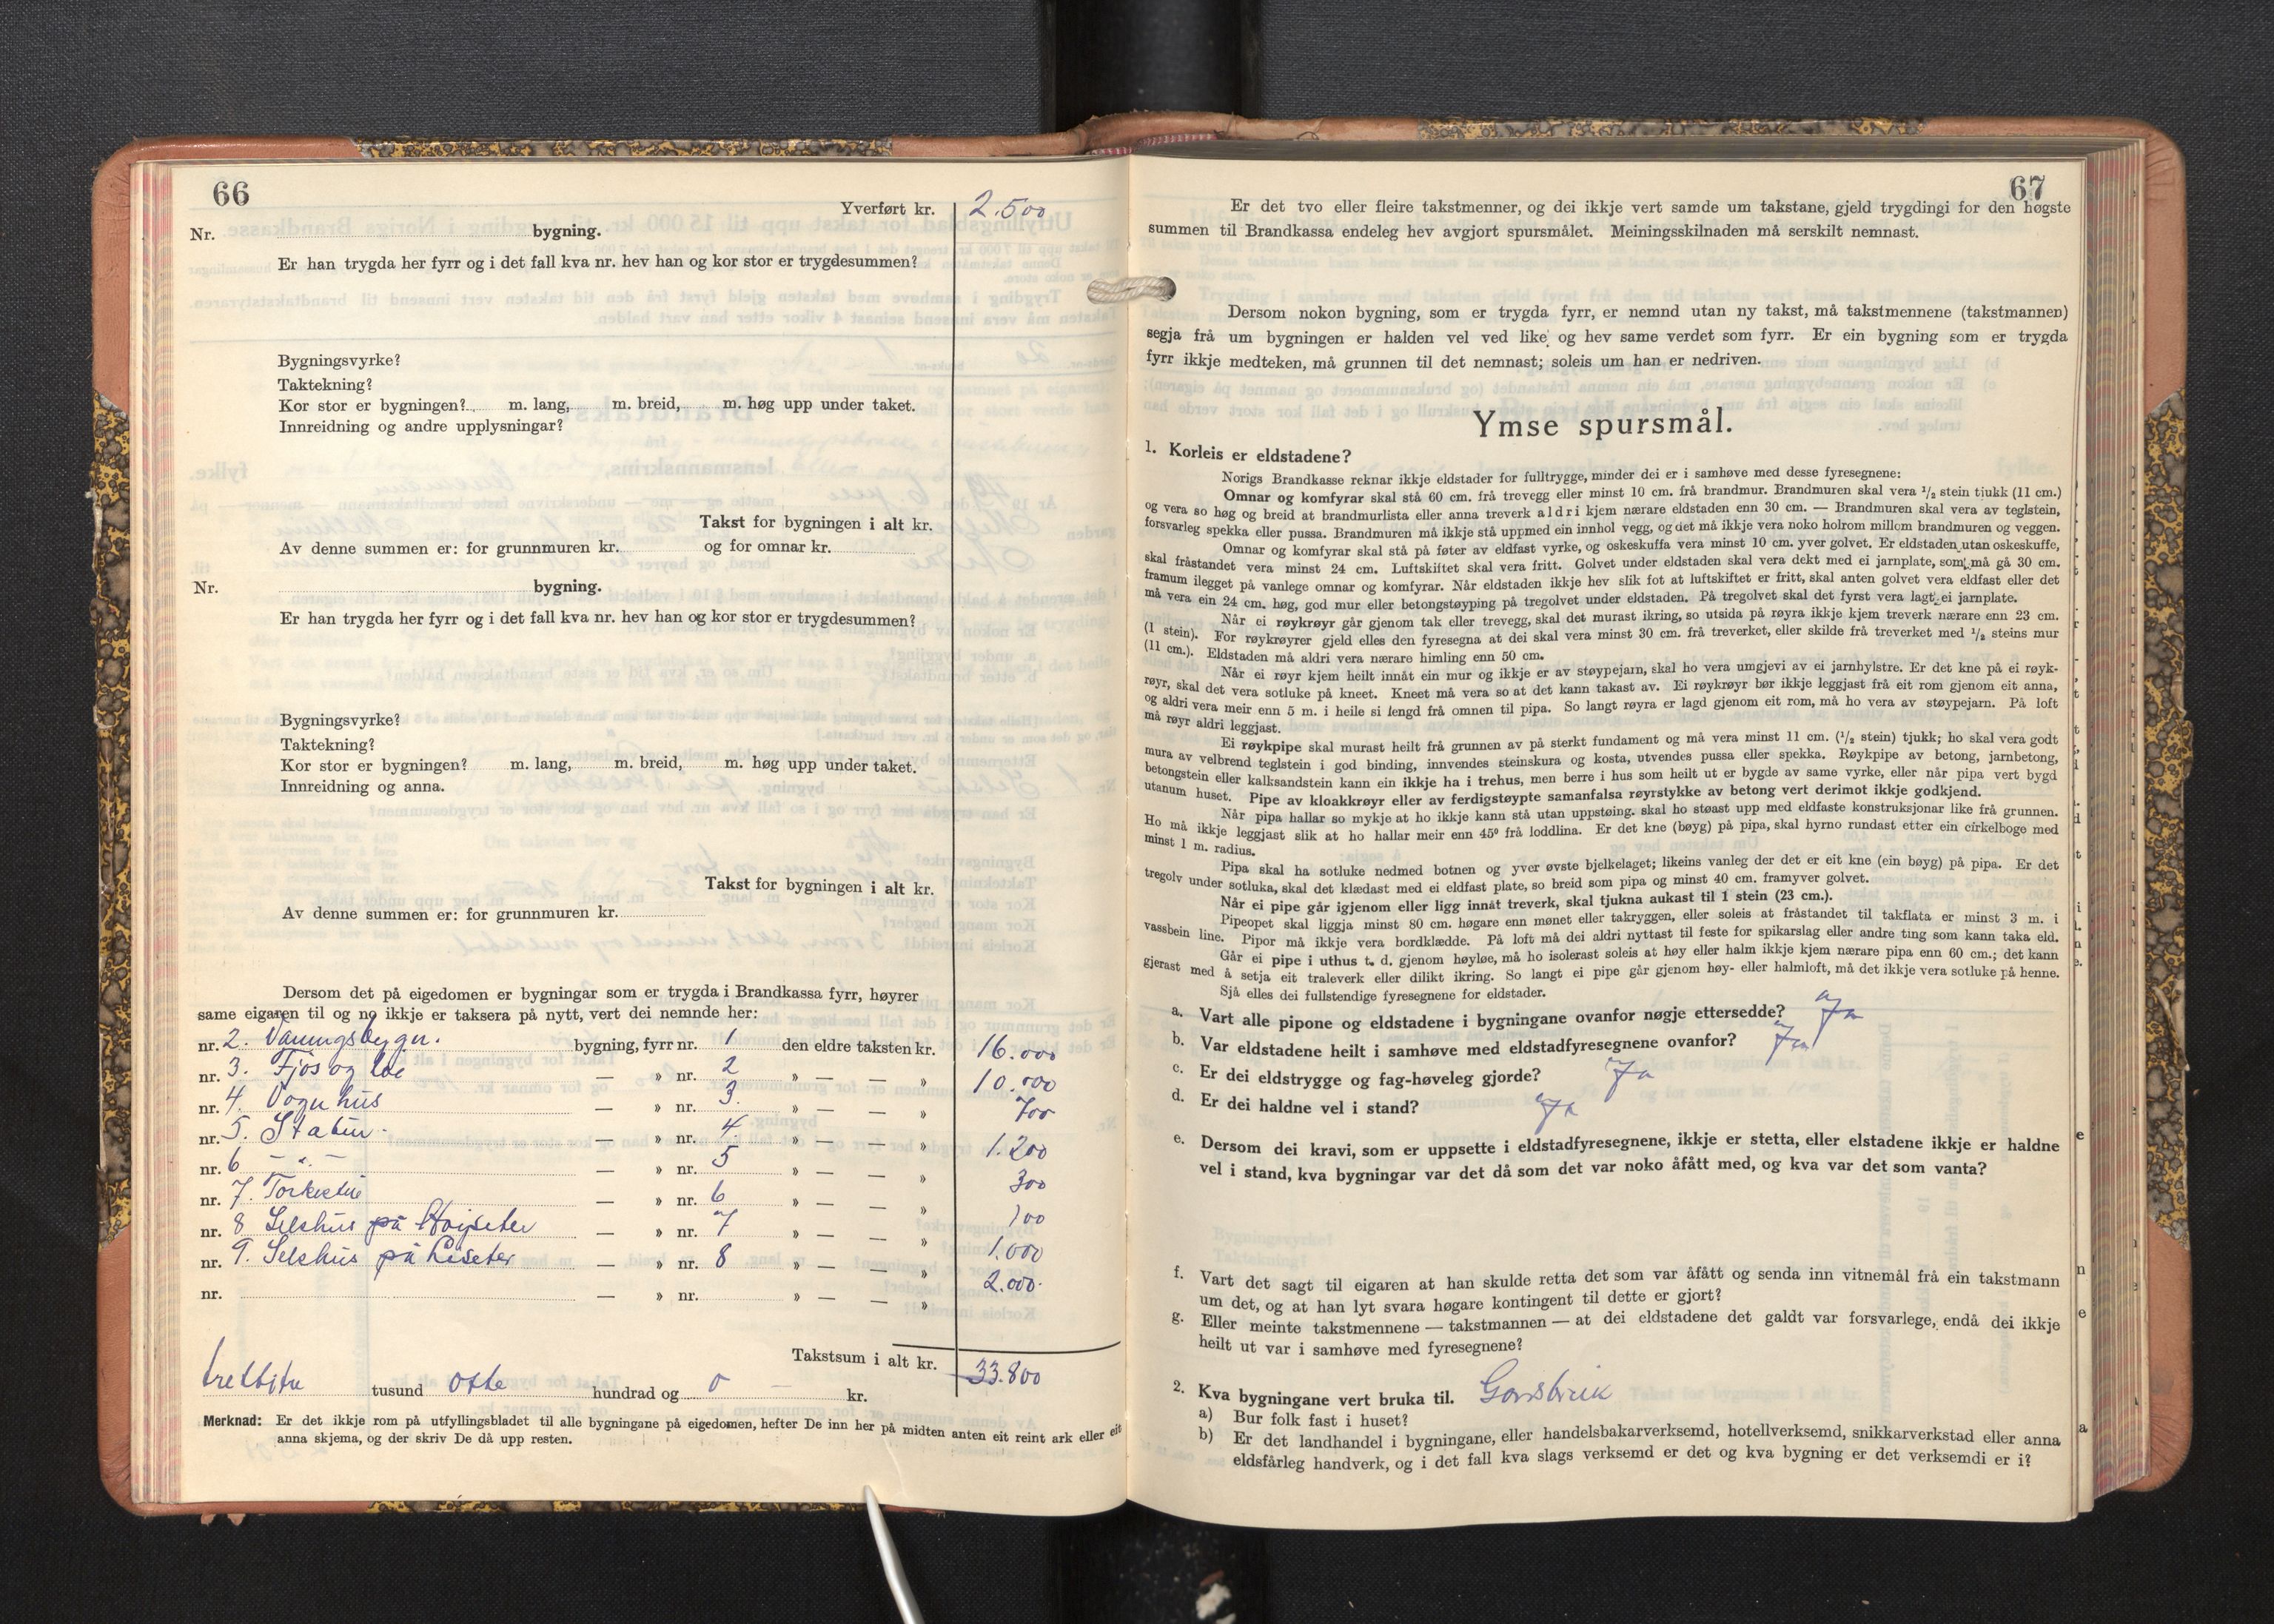 66
Yverført kr. 2.500
Nr. bygning.
Er han trygda her fyrr og i det fall kva nr. hev han og kor stor er trygdesummen?
Bygningsvyrke?
Taktekning?
Kor stor er bygningen? m. lang, m. breid, m. høg upp under taket.
Innreidning og andre upplysningar?
Takst for bygningen i alt kr.
Av denne summen er: for grunnmuren kr. og for omnar kr.
Nr. bygning.
Er han trygda her fyrr og i det fall kva nr. hev han og kor stor er trygdesummen?
Bygningsvyrke?
Taktekning?
Kor stor er bygningen? m. lang, m. breid, m. høg upp under taket.
Innreidning og anna.
Takst for bygningen i alt kr.
Av denne summen er: for grunnmuren kr.
Dersom det på eigedomen er bygningar som er trygda i Brandkassa fyrr, høyrer
same eigaren til og no ikkje er taksera på nytt, vert dei nemnde her:
nr. 2. Vaaningsbygn. bygning, fyrr nr. 1 den eldre taksten kr. 16.000
nr. 3. Fjos og løe — » nr. 2 » — — » 10.000
nr. 4. Vognhus — » nr. 3. » — — » 700
nr. 5. Stabur. — » nr. 4 » — — » 1.200
nr. 6 — " — — » nr. 5 » — — » 300
nr. 7. — » nr. 6 » — — » 100
nr. 8 Selshus på — » nr. 7 » — — » 1.000
nr. 9. Selshus på Liseter — » nr. 8 » — — » 2.000.
nr. — » nr. » — — »
Takstsum i alt kr. 33.800
trettitre tusund otte hundrad og 0 kr.
Merknad: Er det ikkje rom på utfyllingsbladet til alle bygningane på eigedomen, hefter De inn her på midten anten eit reint ark eller eit
anna skjema, og der skriv De då upp resten.
67
Er det tvo eller fleire takstmenner, og dei ikkje vert samde um takstane, gjeld trygdingi for den høgste
summen til Brandkassa endeleg hev avgjort spursmålet. Meiningsskilnaden må serskilt nemnast.
Dersom nokon bygning, som er trygda fyrr, er nemnd utan ny takst, må takstmennene (takstmannen)
segja frå um bygningen er halden vel ved like og hev same verdet som fyrr. Er ein bygning som er trygda
fyrr ikkje medteken, må grunnen til det nemnast; soleis um han er nedriven.
Ymse spursmål.
1. Korleis er eldstadene?
Norigs Brandkasse reknar ikkje eldstader for fulltrygge, minder dei er i samhøve med desse fyresegnene:
Omnar og komfyrar skal stå 60 cm. frå trevegg eller minst 10 cm. frå brandmur. Brandmuren skal vera 1/2 stein tjukk (11 cm.)
og vera so høg og breid at brandmurlista eller anna treverk aldri kjem nærare eldstaden enn 30 cm. — Brandmuren skal vera av teglstein,
forsvarleg spekka eller pussa. Brandmuren må ikkje stå uppmed ein innhol vegg, og det må ikkje vera noko holrom millom brandmuren og veggen.
Omnar og komfyrar skal stå på føter av eldfast vyrke, og oskeskuffa vera minst 10 cm. yver golvet. Er eldstaden utan oskeskuffe,
skal fråstandet vera minst 24 cm. Luftskiftet skal vera fritt. Golvet under eldstaden skal vera dekt med ei jarnplate, som må gå 30 cm.
framum ilegget på vanlege omnar og komfyrar. Når eldstaden ikkje hev slik fot at luftskiftet er fritt, skal anten golvet vera eldfast eller det
må vera ein 24 cm. høg, god mur eller betongstøyping på tregolvet under eldstaden. På tregolvet skal det fyrst vera lagt ei jarnplate.
Når ei røykrøyr går gjenom tak eller trevegg, skal det murast ikring, so utsida på røyra ikkje kjem treverk nærare enn 23 cm.
(1 stein). For røykrøyrer gjeld elles den fyresegna at dei skal vera minst 30 cm. frå treverket, eller skilde frå treverket med 1/2 steins mur
(11 cm.). Eldstaden må aldri vera nærare himling enn 50 cm.
Når ei røyr kjem heilt innåt ein mur og ikkje er av støypejarn, skal ho vera umgjevi av ei jarnhylstre. Er det kne på ei røyk-
røyr, skal det vera sotluke på kneet. Kneet må vera so at det kann takast av. Ei røykrøyr bør ikkje leggjast frå eit rom gjenom eit anna,
og aldri vera meir enn 5 m. i heile si lengd frå omnen til pipa. So langt røyra er lagd gjenom eit rom, må ho vera av støypejarn. På loft
må røyr aldri leggjast.
Ei røykpipe skal murast heilt frå grunnen av på sterkt fundament og må vera minst 11 cm. (1/2 stein) tjukk; ho skal vera godt
mura av velbrend teglstein i god binding, innvendes steinskura og kosta, utvendes pussa eller spekka. Røykpipe av betong, jarnbetong,
betongstein eller kalksandstein kann ein ikkje ha i trehus, men berre i hus som heilt ut er bygde av same vyrke, eller når pipa vert bygd
utanum huset. Pipe av kloakkrøyr eller av ferdigstøypte samanfalsa røyrstykke av betong vert derimot ikkje godkjend.
Når pipa hallar so mykje at ho ikkje kann stå utan uppstøing. skal ho støast upp med eldfaste konstruksjonar like frå grunnen.
Ho må ikkje leggjast slik at ho hallar meir enn 45° frå loddlina. Er det kne (bøyg) på pipa, skal hyrno rundast etter ein cirkelboge med
minst 1 m. radius.
Pipa skal ha sotluke nedmed botnen og yver øvste bjelkelaget; likeins vanleg der det er eit kne (ein bøyg) på pipa. Er det
tregolv under sotluka, skal det klædast med ei eldfast plate, so breid som pipa og minst 40 cm. framyver golvet.
Når ei pipe går igjenom eller ligg innåt treverk, skal tjukna aukast til 1 stein (23 cm.).
Pipeopet skal liggja minst 80 cm. høgare enn mønet eller takryggen, eller soleis at fråstandet til takflata er minst 3 m. i
vassbein line. Pipor må ikkje vera bordklædde. På loft må dei aldri nyttast til feste for spikarslag eller andre ting som kann taka eld.
Går ei pipe i uthus t. d. gjenom høyløe, må ho isolerast soleis at høy eller halm ikkje kjem nærare pipa enn 60 cm.; det kann
gjerast med å setja eit traleverk eller dilikt ikring. So langt ei pipe går gjenom høy- eller halmloft, må det ikkje vera sotluke på henne.
Sjå elles dei fullstendige fyresegnene for eldstader.
a. Vart alle pipone og eldstadene i bygningane ovanfor nøgje ettersedde? Ja
b. Var eldstadene heilt i samhøve med eldstadfyresegnene ovanfor? Ja
c. Er dei eldstrygge og fag-høveleg gjorde? Ja
d. Er dei haldne vel i stand? Ja
e. Dersom dei kravi, som er uppsette i eldstadfyresegnene, ikkje er stetta, eller elstadene ikkje er haldne
vel i stand, kva bygningar var det då som det var noko åfått med, og kva var det som vanta?
f. Vart det sagt til eigaren at han skulde retta det som var åfått og senda inn vitnemål frå ein takstmann
um det, og at han lyt svara høgare kontingent til dette er gjort?
g. Eller meinte takstmennene — takstmannen — at dei eldstadene det galdt var forsvarlege, endå dei ikkje
heilt ut var i samhøve med fyresegnene?
2. Kva bygningane vert bruka til. Gardsbruk
a) Bur folk fast i huset?
b) Er det landhandel i bygningane, eller handelsbakarverksemd, hotellverksemd, snikkarverkstad eller anna
eldsfårleg handverk, og i det fall kva slags verksemd er det og kva bygning er det verksemdi er i?